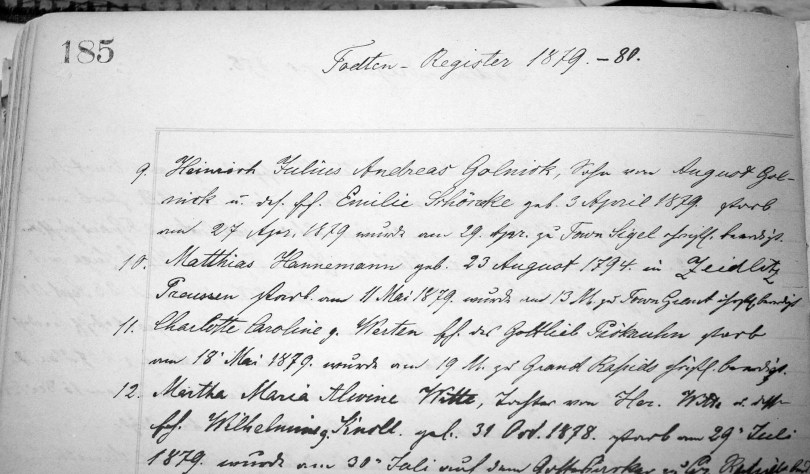 185
Todten-Register 1879.-80.
9. Heinrich Julius Andreas Golnick, Sohn von August Gol-
nick u. des. Eff. Emilie Schönke geb. 3 April 1879. starb
am 27 Apr. 1879 wurde am 29. Apr. zu Town Sigel christl. beerdigt.
10. Matthias Hannemann geb. 23 August 1794. in Zeidlitz
Preussen starb. am 11 Mai 1879. wurde am 13 M. zu Town Grant christl. beerdigt
11. Charlotte Caroline g. Werten Eff. des Gottlieb starb
am 18' Mai 1879. wurde am 19 M. zu Grand Rapids christl. beerdigt.
12. Martha Maria Alwine Witte, Tochter von Her. Witte u.
Eff. Wilhelmine g. Knoll. geb. 31 Oct. 1878. starb am 29' Juli
1879. wurde am 30' Juli auf dem